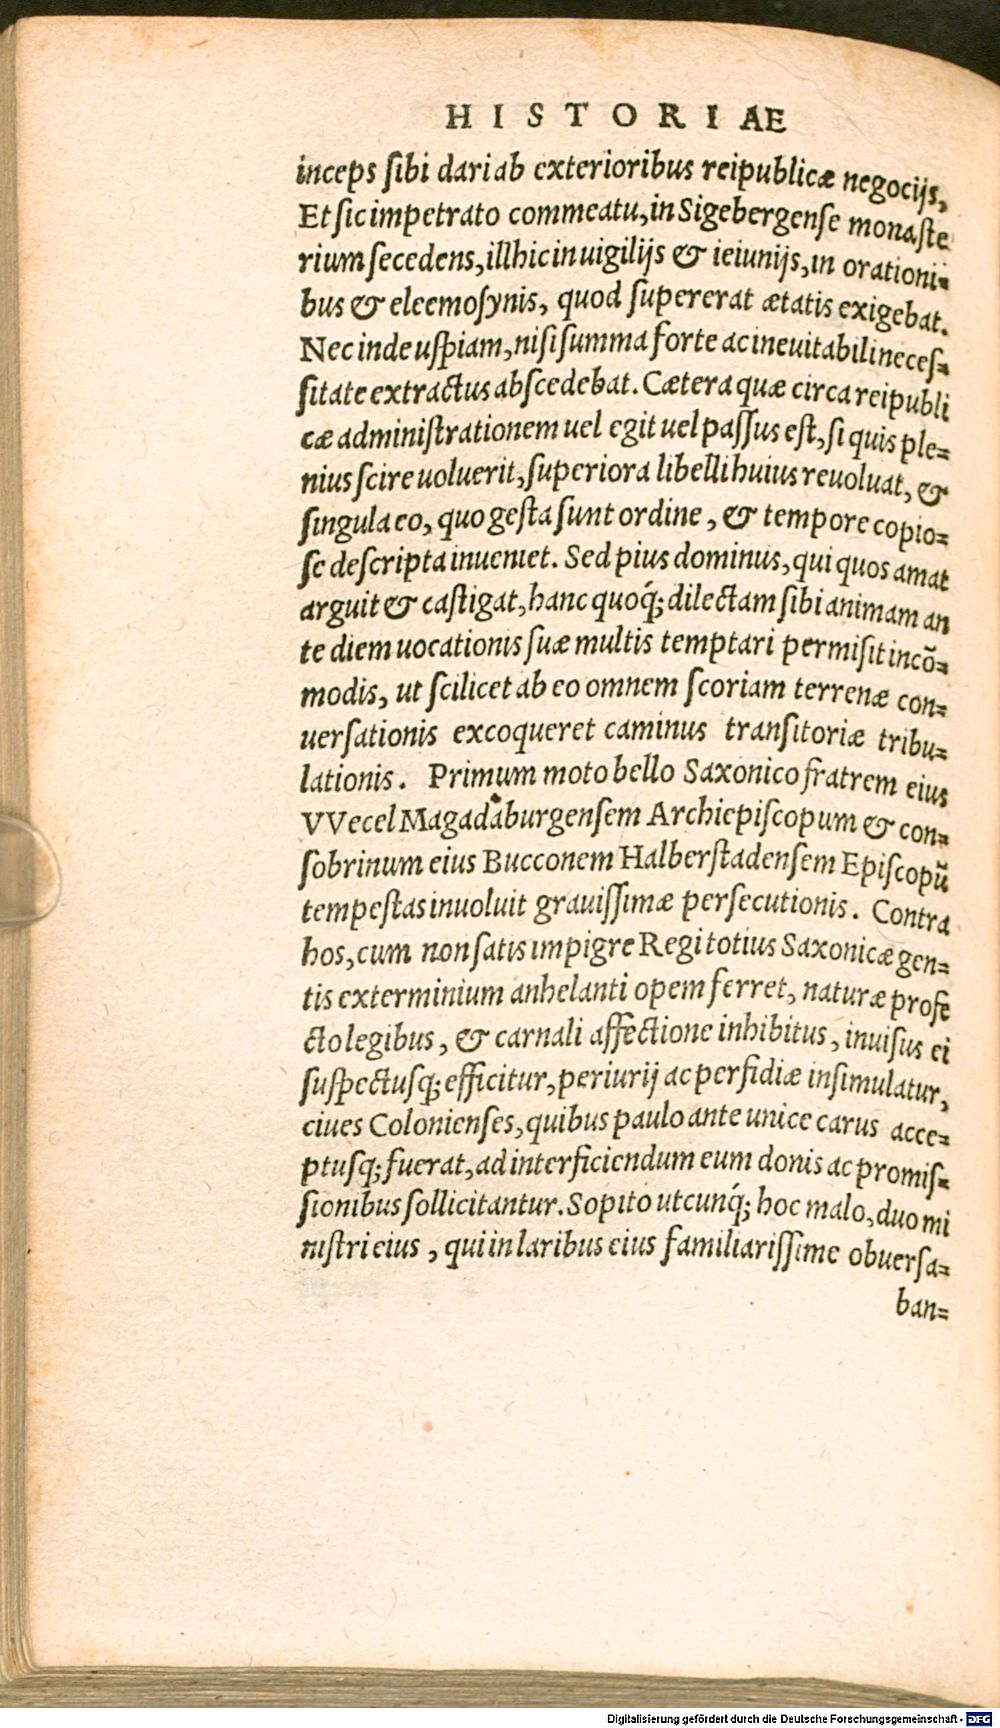 HISTORIAE
inceps ſibi dari ab exterioribus reipublicæ negocijs,
Et ſic impetrato commeatu, in Sigebergenſe monaſte
rium ſecedens, illhic in uigilijs & ieiunijs, in orationi=
bus & eleemoſynis, quod ſupererat ætatis exigebat.
Nec inde uſpiam, niſi ſumma forte ac ineuitabili neceſ=
ſitate extractus abſcedebat. Cætera quæ circa reipubli
cæ adminiſtrationem uel egit uel paſſus eſt, ſi quis ple=
nius ſcire uoluerit, ſuperiora libelli huius reuoluat, &
ſingula eo, quo geſta ſunt ordine, & tempore copio=
ſe deſcripta inueniet. Sed pius dominus, qui quos amat
arguit & caſtigat, hanc quoq́; dilectam ſibi animam an
te diem uocationis ſuæ multis temptari permiſit incõ=
modis, ut ſcilicet ab eo omnem ſcoriam terrenæ con=
uerſationis excoqueret caminus tranſitoriæ tribu=
lationis. Primum moto bello Saxonico fratrem eius
VVecel Magadaburgenſem Archiepiſcopum & con=
ſobrinum eius Bucconem Halberſtadenſem Epiſcopũ
tempeſtas inuoluit grauiſſimæ perſecutionis. Contra
hos, cum non ſatis impigre Regi totius Saxonicæ gen=
tis exterminium anhelanti opem ferret, naturæ profe
cto legibus, & carnali affectione inhibitus, inuiſus ei
ſuſpectusq; efficitur, periurij ac perfidiæ inſimulatur,
ciues Colonienſes, quibus paulo ante unice carus acce=
ptusq; fuerat, ad interficiendum eum donis ac promiſ=
ſionibus ſollicitantur. Sopito utcunq́; hoc malo, duo mi
niſtri eius, qui in laribus eius familiariſſime obuerſa=
ban=
Digitalisierung gefördert durch die Deutsche Forschungsgemeinschaft - DFG